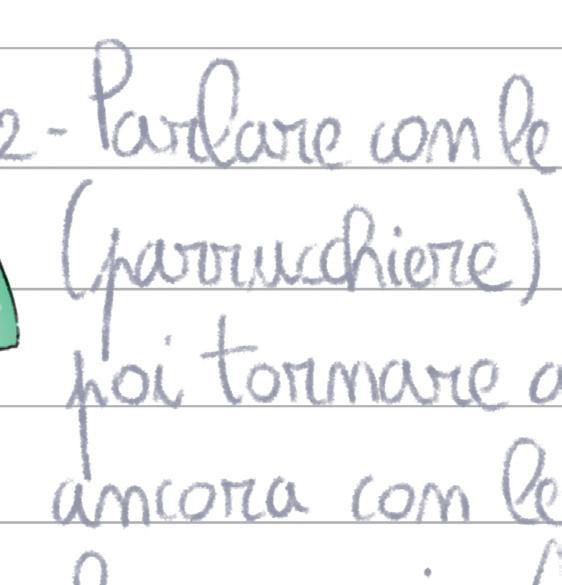 2- Parlare con le
(parrucchiere)
poi tornare a
ancora con le